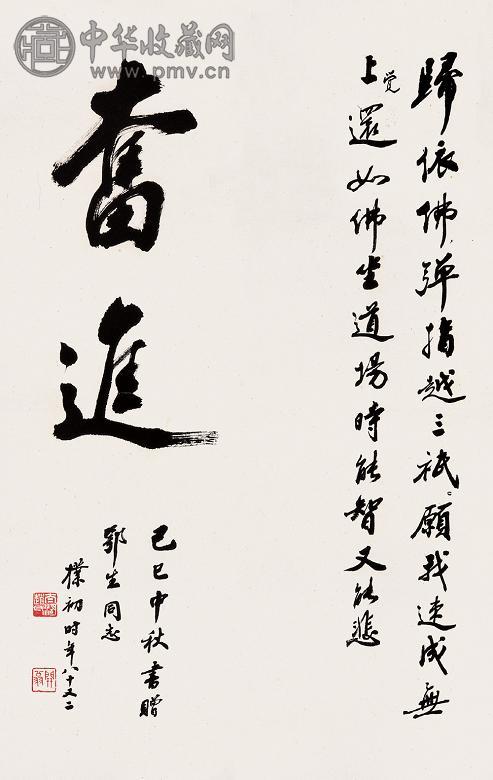 中华收藏网
www.pmv.cn
歸依佛弹指越三祇願我速成無
上觉還如佛坐道場時能智又能悲
奮
進
己巳中秋書贈
同志
樸初時年八十又二